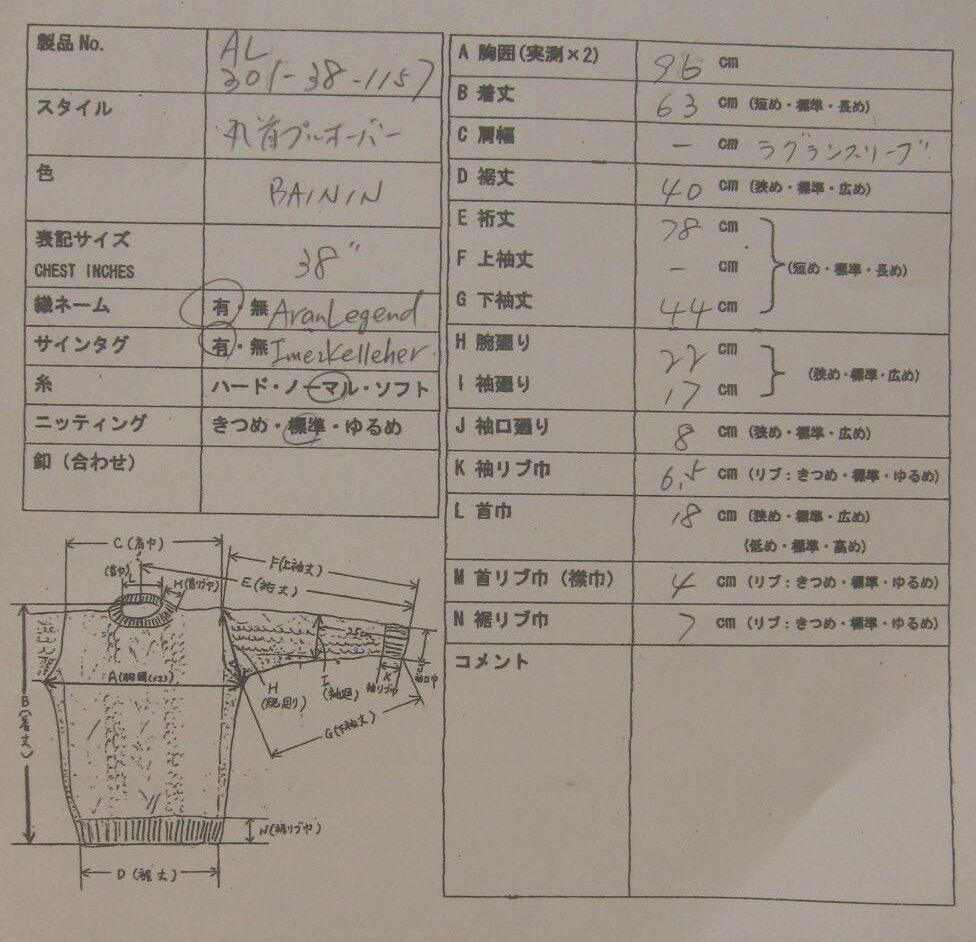 製品No.
AL
301-38-1157
スタイル
丸首プルオーバー
色
BAININ
表記サイズ
CHEST INCHES
38"
織ネーム
有・無 AranLegend
サインタグ
有・無 Imezkelleher.
糸
ハード・ノーマル・ソフト
ニッティング
きつめ・標準・ゆるめ
釦（合わせ）
A 胸囲(実測×2) 96 cm
B 着丈 63 cm (短め・標準・長め)
C 肩幅 - cm ラグランスリーブ
D 裾丈 40 cm (狭め・標準・広め)
E 裄丈 78 cm
F 上袖丈 - cm (短め・標準・長め)
G 下袖丈 44 cm
H 腕廻り 22 cm
(狭め・標準・広め)
I 袖廻り 17 cm
J 袖口廻り 8 cm (狭め・標準・広め)
K 袖リブ巾 6.5 cm (リブ：きつめ・標準・ゆるめ)
L 首巾 18 cm (狭め・標準・広め)
(低め・標準・高め)
M 首リブ巾（襟巾） 4 cm (リブ：きつめ・標準・ゆるめ)
N 裾リブ巾 7 cm (リブ：きつめ・標準・ゆるめ)
コメント
C(肩巾)
F(上袖丈)
(首巾)
L
M(首リブ巾)
E(裄丈)
A(胸囲(×2))
B(着丈)
H
(腕廻り)
I
(袖廻)
K
袖リブ巾
J
袖口巾
G(下袖丈)
N(裾リブ巾)
D(裾丈)